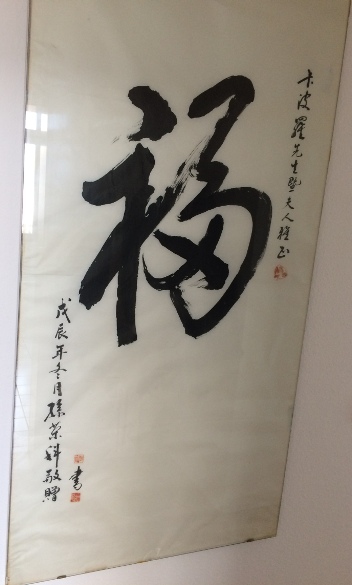 卡波羅先生暨夫人雅正
福
戊辰年冬月孫榮科敬贈
書